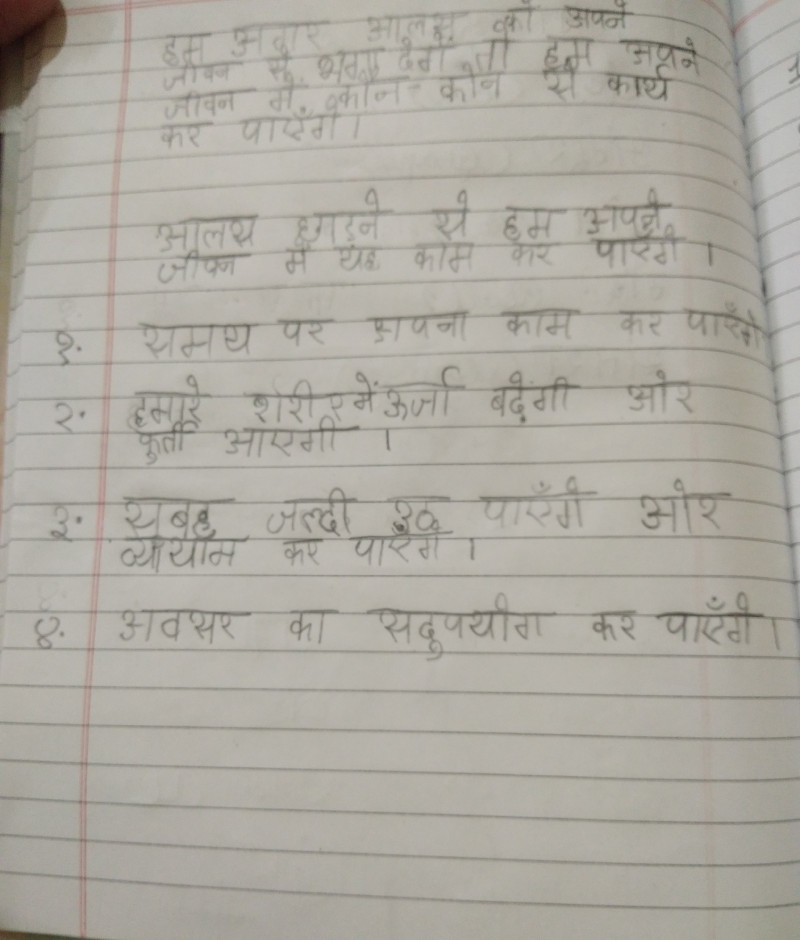 हम अगर आलस को अपने
जीवन से भगा देंगे तो हम अपने
जीवन में कौन-कौन से कार्य
कर पाएँगे।
आलस छोड़ने से हम अपने
जीवन में यह काम कर पाएँगे।
१. समय पर अपना काम कर पाएँगे
२. हमारे शरीर में ऊर्जा बढ़ेगी ओर
फुर्ती आएगी।
३. सुबह जल्दी उठ पाएँगे ओर
व्यायाम कर पाएँगे।
४. अवसर का सदुपयोग कर पाएँगे।